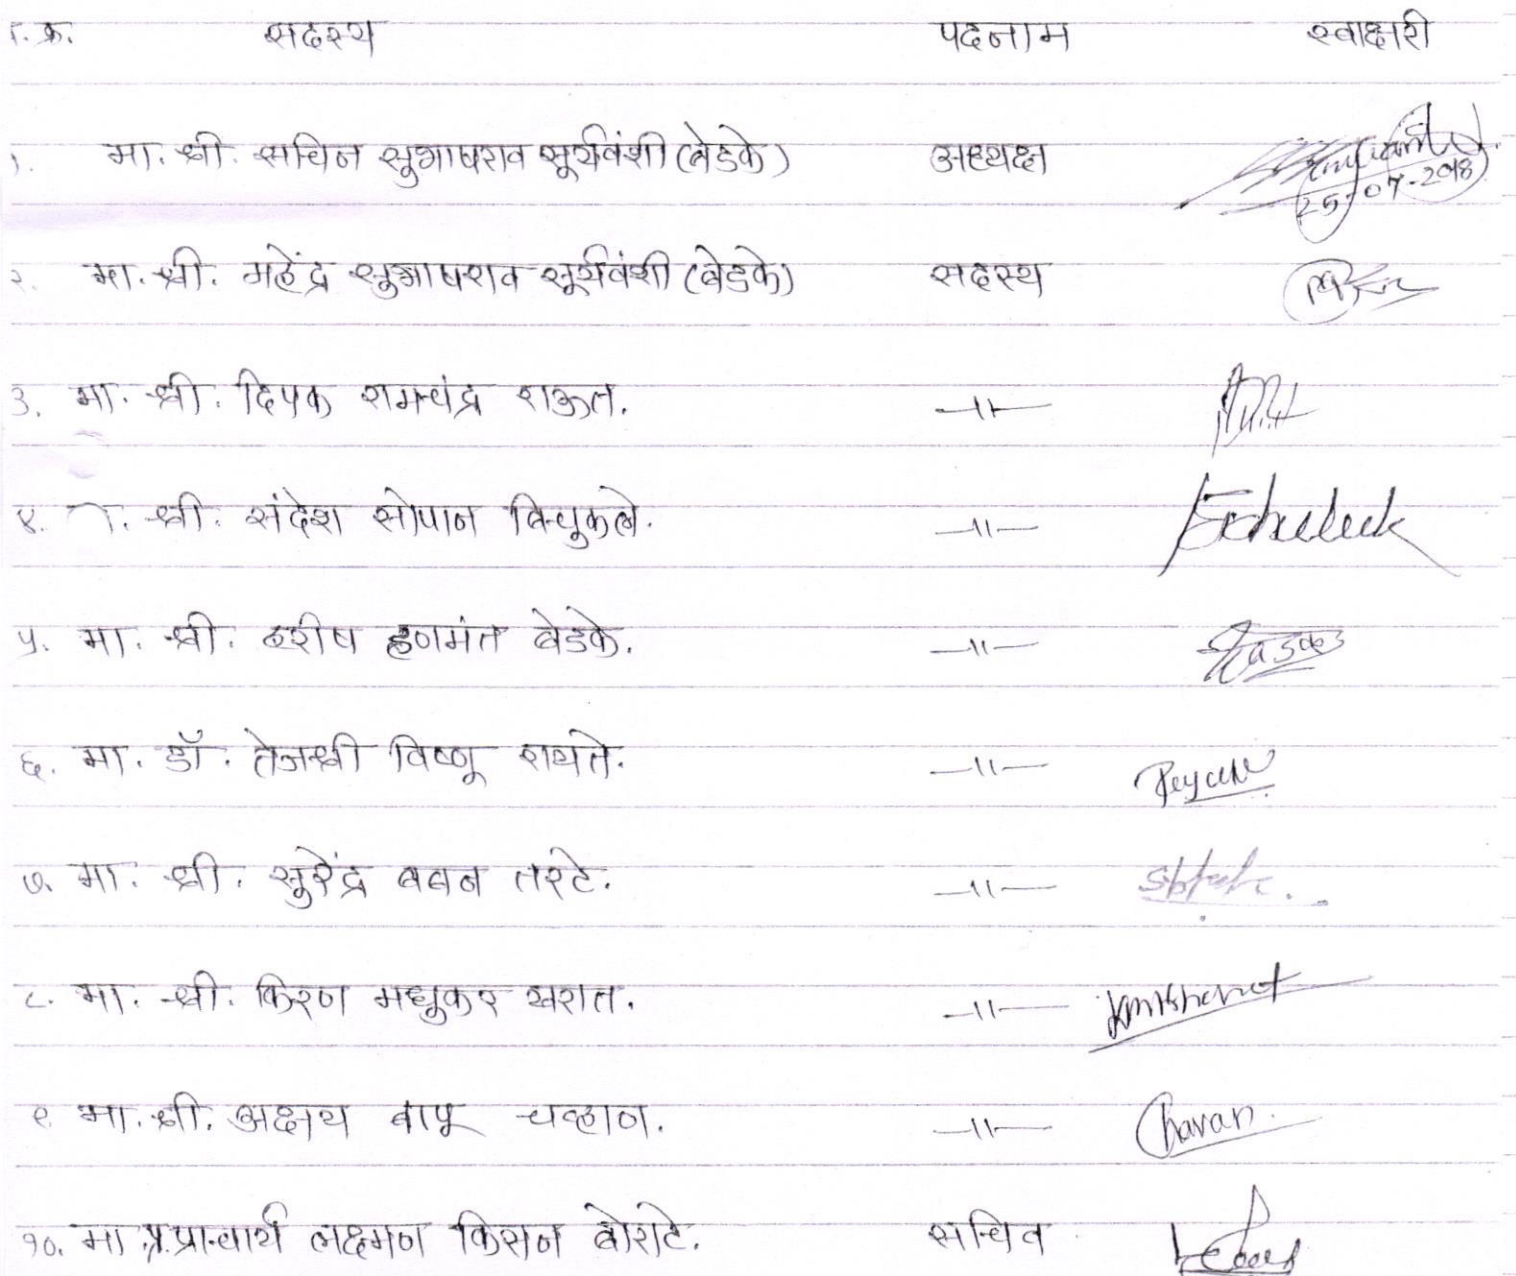 क्र. सदस्य पदनाम स्वाक्षरी
१. मा. श्री. सचिन सुभाषराव सूर्यवंशी (बेडके) अध्यक्ष
25-07-2018
२. मा. श्री. महेंद्र सुभाषराव सूर्यवंशी (बेडके) सदस्य
३. मा. श्री. दिपक रामचंद्र राऊत. —11—
४. श्री. संदेश सोपान बिचुकले. —11—
५. मा. श्री. हरीष हणमंत बेडके. —11—
६. मा. डॉ. तेजश्री विष्णू रायते. —11—
७. मा. श्री. सुरेंद्र बबन तरटे. —11—
८. मा. श्री. किरण मधुकर खरात. —11—
९. मा. श्री. अक्षय बापू चव्हाण. —11— Chavan.
१०. मा. प्र. प्राचार्य लक्ष्मण किसन बोराटे. सचिव